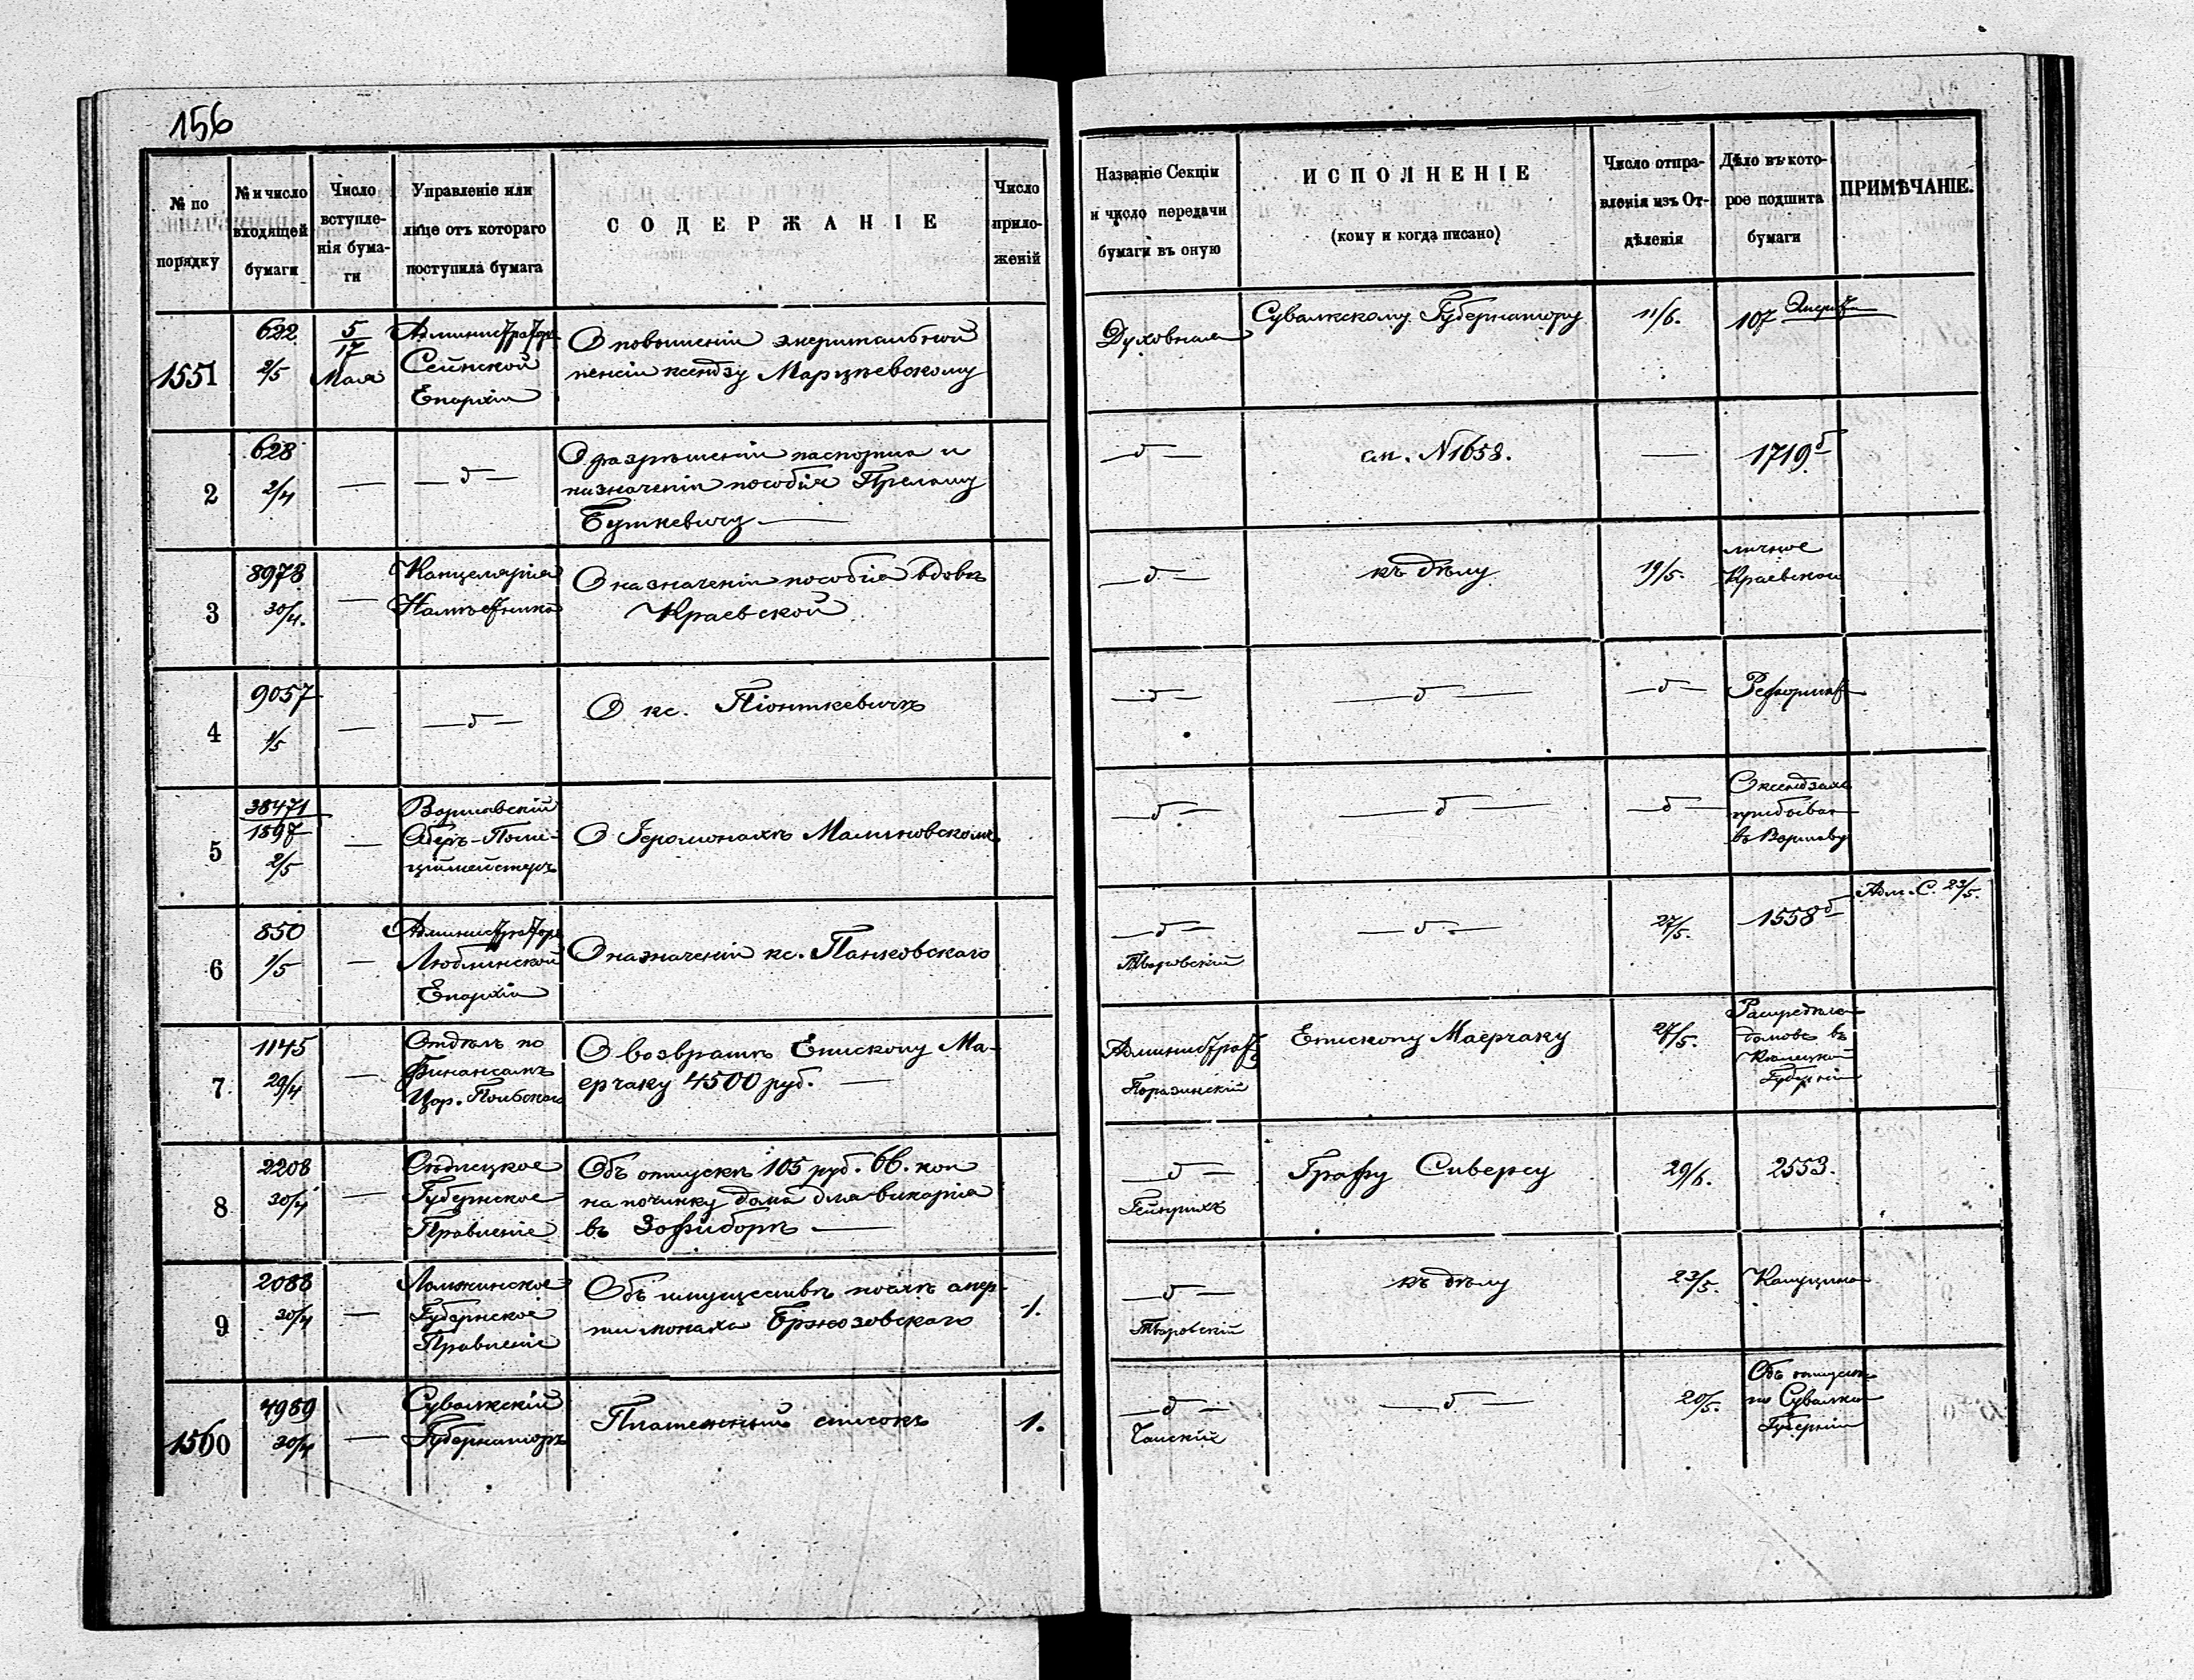 156
№ по порядку
№ и число входящей бумаги
Число вступленія бумаги
Управленіе или лице отъ котораго поступила бумага
СОДЕРЖАНІЕ
Число приложеній
Названіе Секціи и число передачи бумаги въ оную
ИСПОЛНЕНІЕ
(кому и когда писано)
Число отправленія изъ Отдѣленія
Дѣло въ которое подшита бумаги
ПРИМѢЧАНІЕ.
1551
622
2/5
5/17
Мая
Администраторъ
Сейнской
Епархіи
О повышеніи эмеритальной
пенсіи ксендзу
Духовная
Сувалкскому Губернатору
11/6.
107
2
628
2/4
—
— д —
О разрѣшеніи паспорта и
назначеніи пособія Прелату
Буткевичу —
— д —
см. N1658.
—
1719 б
3
8978
30/4.
—
Канцелярія
Намѣстника
О назначеніи пособія вдовѣ
Краевской
— д —
къ дѣлу
19/5.
личное
Краевской
4
9057
1/5
—
— д —
О кс. Піонткевичѣ
— д —
— д —
— д —
5
38471
1897
2/5
—
Варшавскій
Оберъ-Поли-
ціймейстеръ
О Іеромонахѣ Малиновскомъ
— д —
— д —
— д —
О ксендзахъ
прибывш
въ Варшаву
6
850
1/5
—
Администраторъ
Люблинской
Епархіи
О назначеніи кс. Панковскаго
— д —
— д —
27/5.
1558 б
Адм. С. 23/5.
7
1145
29/4
—
Отдѣлъ по
Финансамъ
Цар. Польскаго
О возвратѣ Епископу Ма-
ерчаку 4500 руб. —
Административ
Епископу Маерчаку
27/5.
домовъ въ
Губерніи
8
2208
30/4
—
Сѣдлецкое
Губернское
Правленіе
Объ отпускѣ 105 руб. 66. коп
на починку дома для викарія
въ Зофиборѣ —
— д —
Гейнрихъ
Графу Сиверсу
29/6.
2553.
9
2088
30/4
—
Ломжинское
Губернское
Правленіе
Объ имуществѣ послѣ смер-
ти монаха Бржозовскаго
1.
— д —
къ дѣлу
23/5.
1560
4989
30/4
—
Сувалкскій
Губернаторъ
Платежный списокъ
1.
— д —
— д —
20/5.
по Сувалкск
Губерніи